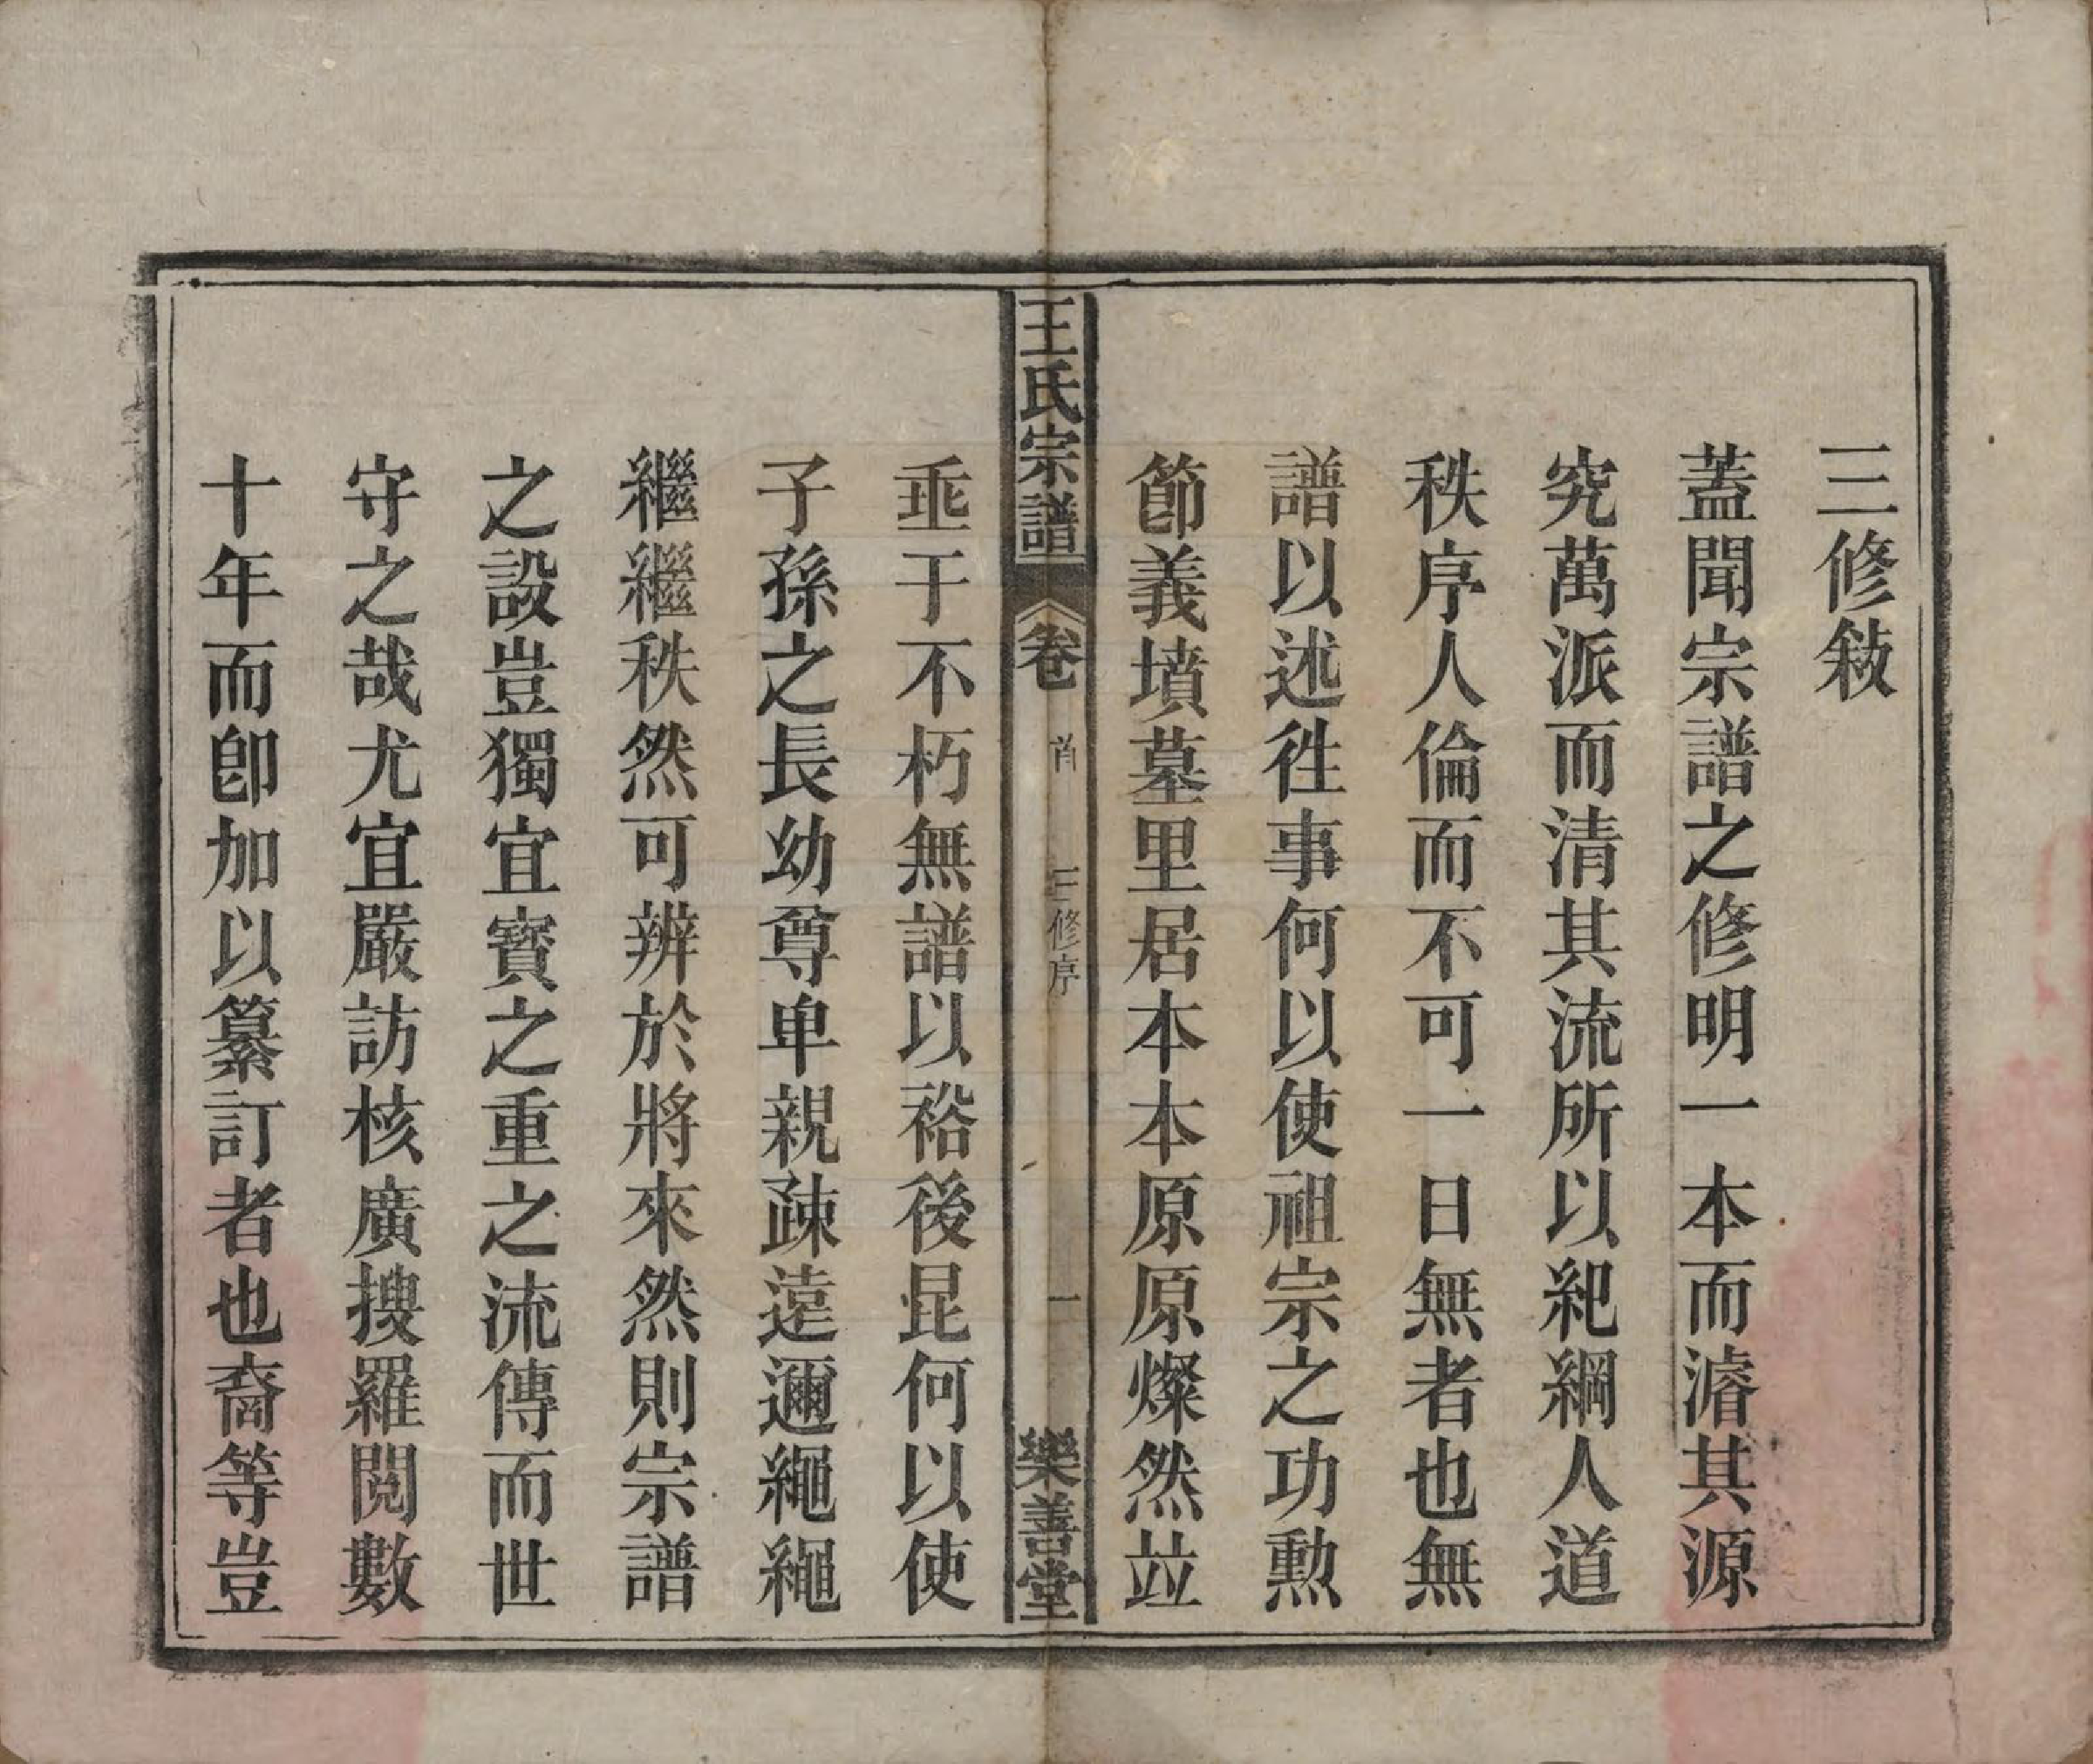 三修敍
蓋聞宗譜之修明一本而濬其源
究萬派而清其流所以紀綱人道
秩序人倫而不可一日無者也無
譜以述徃事何以使祖宗之功勲
節義墳墓里居本本原原燦然竝
王氏宗譜
卷
首
三修序
一
樂善堂
垂于不朽無譜以裕後昆何以使
子孫之長幼尊卑親疎遠邇繩繩
繼繼秩然可辨於將來然則宗譜
之設豈獨宜寳之重之流傳而世
守之哉尤宜嚴訪核廣搜羅閱數
十年而卽加以纂訂者也裔等豈